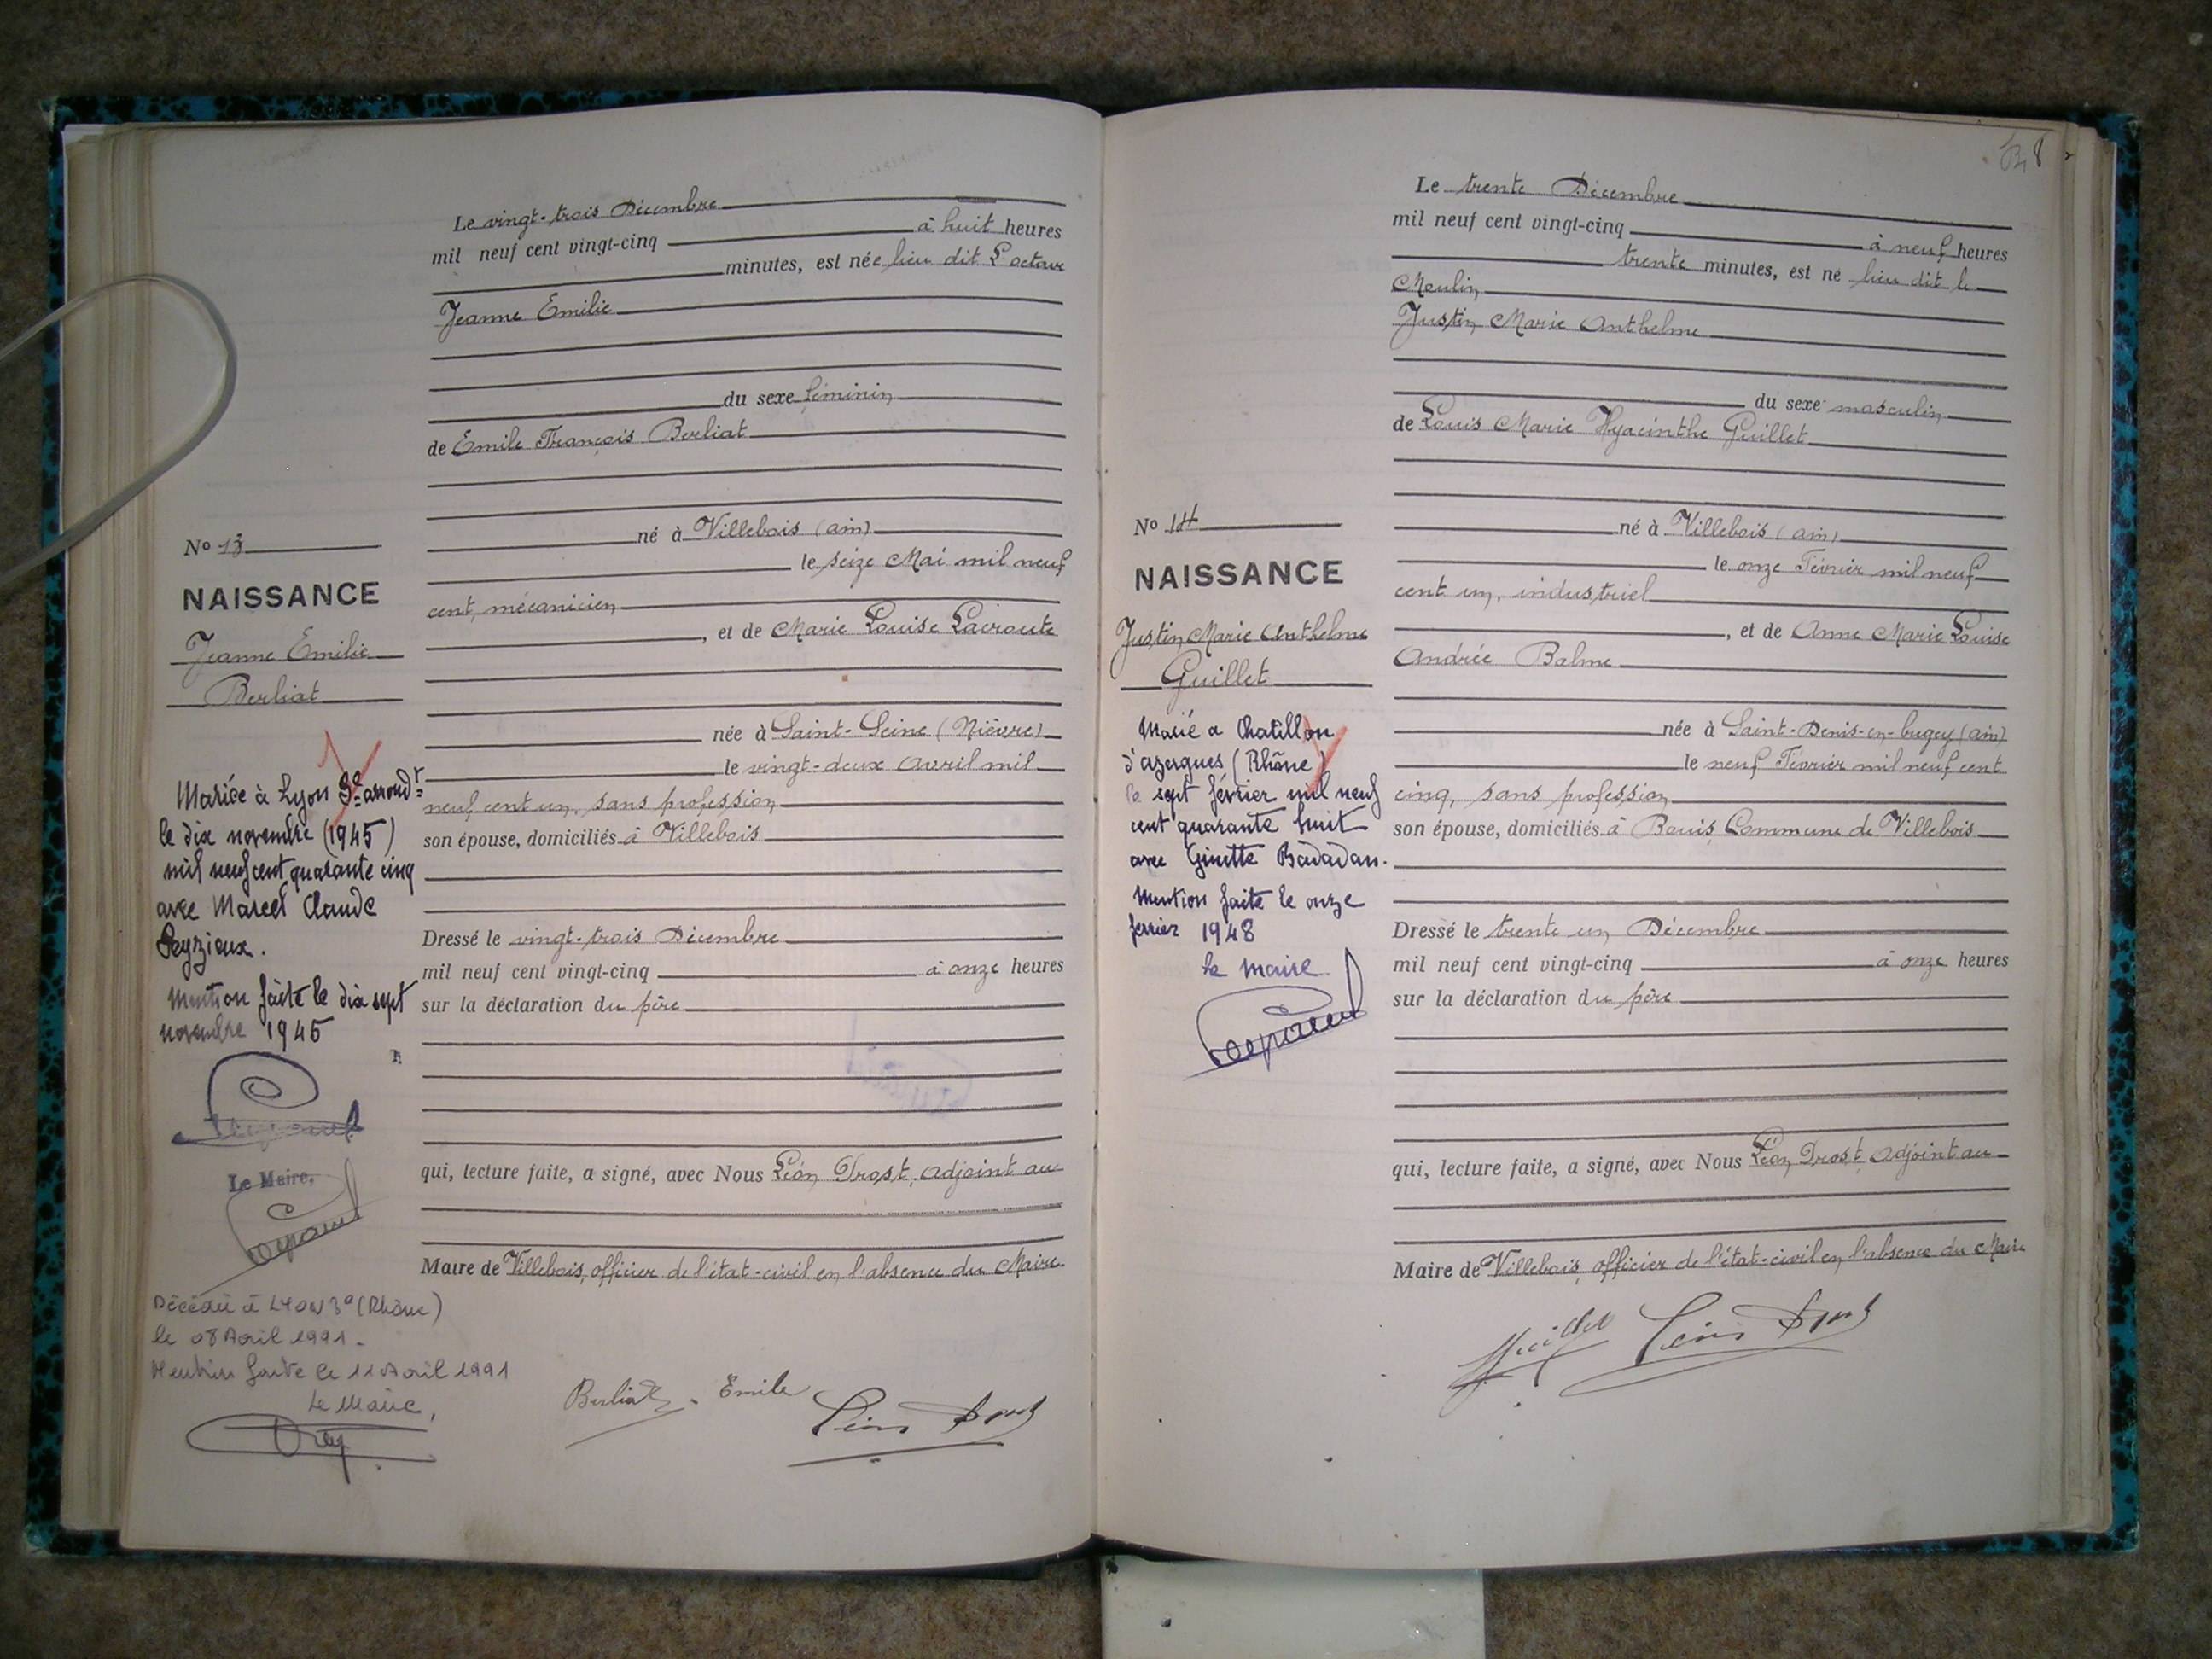 Le vingt-trois Décembre
mil neuf cent vingt-cinq à huit heures
minutes, est née lieu dit L'octave
Jeanne Emilie
du sexe féminin
de Emile François Berliat
né à Villebois (ain)
le seize Mai mil neuf
cent, mécanicien
, et de Marie Louise Lacroute
née à Saint-Seine (Nièvre)
le vingt-deux avril mil
neuf cent un, sans profession
son épouse, domiciliés à Villebois
Dressé le vingt-trois Décembre
mil neuf cent vingt-cinq à onze heures
sur la déclaration du père
qui, lecture faite, a signé, avec Nous Léon Drost, adjoint au
Maire de Villebois, officier de l'état-civil en l'absence du Maire
Berliat Emile Léon Drost
No 13
NAISSANCE
Jeanne Emilie
Berliat
Mariée à Lyon 3e arrondt
le dix novembre (1945)
mil neuf cent quarante cinq
avec Marcel Claude
Peyzieux.
Mention faite le dix sept
novembre 1945
Le Maire,
Décédée à LYON 3e (Rhône)
le 08 Avril 1991.
Mention faite le 11 Avril 1991
Le Maire,
Le trente Décembre
mil neuf cent vingt-cinq à neuf heures
trente minutes, est né lieu dit le
Moulin
Justin Marie Anthelme
du sexe masculin
de Louis Marie Hyacinthe Guillet
né à Villebois (ain)
le onze Février mil neuf
cent un, industriel
, et de Anne Marie Louise
Andrée Balme
née à Saint-Denis-en-bugey (ain)
le neuf Février mil neuf cent
cinq, sans profession
son épouse, domiciliés à Bouis Commune de Villebois
Dressé le trente un Décembre
mil neuf cent vingt-cinq à onze heures
sur la déclaration du père
qui, lecture faite, a signé, avec Nous Léon Drost, adjoint au
Maire de Villebois, officier de l'état-civil en l'absence du Maire
Guillet Léon Drost
No 14
NAISSANCE
Justin Marie Anthelme
Guillet
Marié a Chatillon
d'azergues (Rhône)
le sept février mil neuf
cent quarante huit
avec Ginette Badadan.
Mention faite le onze
fevrier 1948
le maire